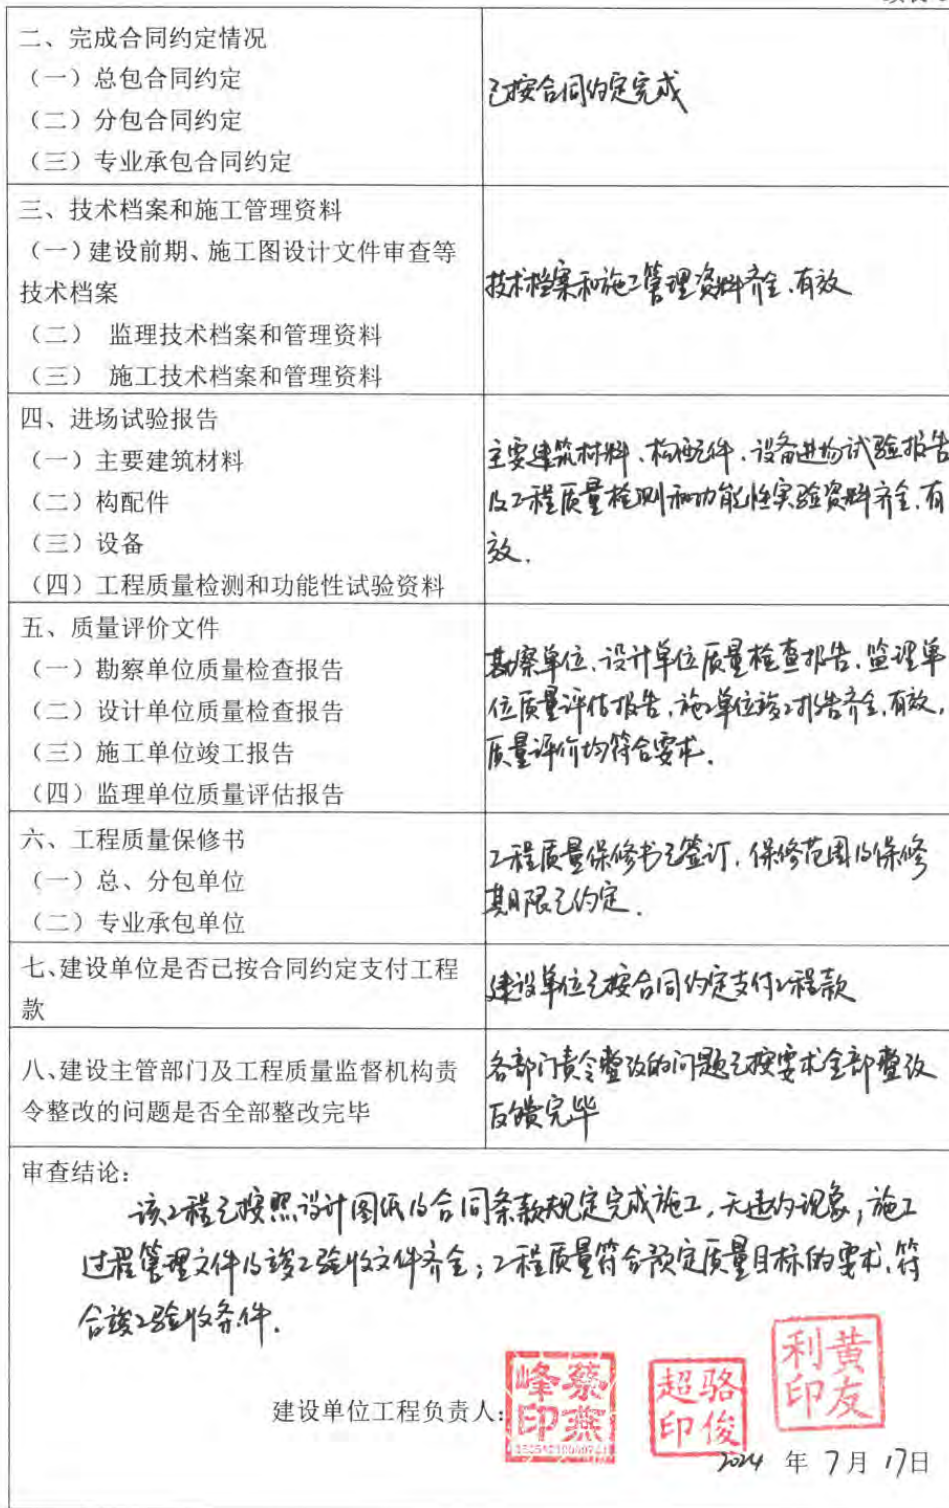 二、完成合同约定情况
（一）总包合同约定
（二）分包合同约定
（三）专业承包合同约定
已按合同约定完成
三、技术档案和施工管理资料
（一）建设前期、施工图设计文件审查等
技术档案
（二） 监理技术档案和管理资料
（三） 施工技术档案和管理资料
技术档案和施工管理资料齐全、有效
四、进场试验报告
（一）主要建筑材料
（二）构配件
（三）设备
（四）工程质量检测和功能性试验资料
主要建筑材料、构配件、设备进场试验报告
及工程质量检测和功能性实验资料齐全、有
效.
五、质量评价文件
（一）勘察单位质量检查报告
（二）设计单位质量检查报告
（三）施工单位竣工报告
（四）监理单位质量评估报告
勘察单位、设计单位质量检查报告、监理单
位质量评估报告、施工单位竣工报告齐全、有效,
质量评价均符合要求.
六、工程质量保修书
（一）总、分包单位
（二）专业承包单位
工程质量保修书已签订, 保修范围及保修
期限已约定.
七、建设单位是否已按合同约定支付工程
款
建设单位已按合同约定支付工程款
八、建设主管部门及工程质量监督机构责
令整改的问题是否全部整改完毕
各部门责令整改的问题已按要求全部整改
反馈完毕
审查结论：
该工程已按照设计图纸及合同条款规定完成施工, 无违约现象; 施工
过程管理文件及竣工验收文件齐全; 工程质量符合预定质量目标的要求, 符
合竣工验收条件.
建设单位工程负责人：
蔡燕峰印
骆俊超印
黄友利印
2024 年 7 月 17 日